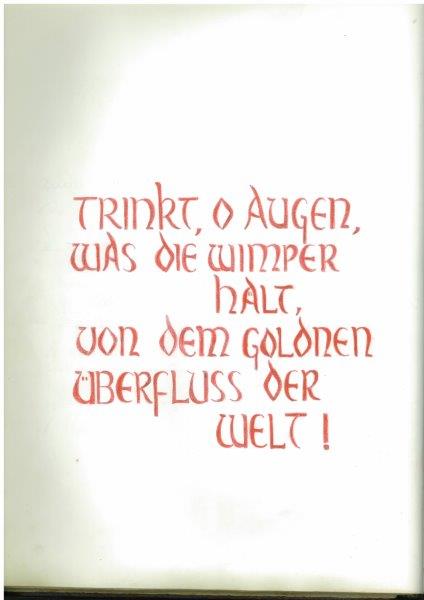 TRINKT, O AUGEN,
WAS DIE WIMPER
HALT,
VON DEM GOLDNEN
ÜBERFLUSS DER
WELT!